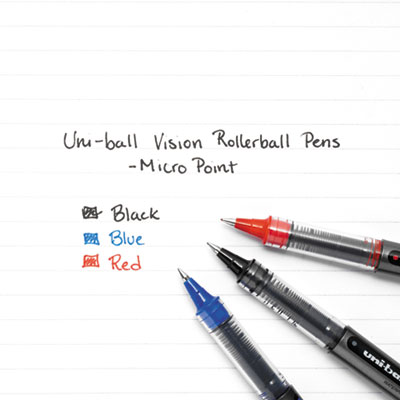 Uni-ball Vision Rollerball Pens
-Micro Point
Black
Blue
Red
uni-ba